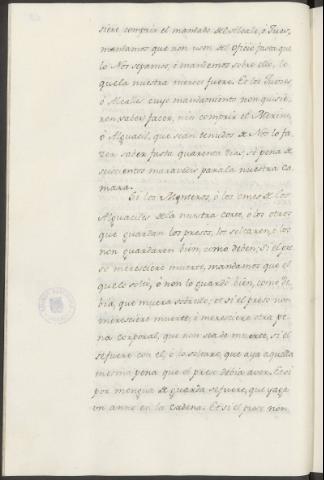 siere comprir el mandado del Alcalle, ó Jues,
mandamos que non usen del oficio fasta que
lo Nos sepamos, é mandemos sobre ello, lo
que la nuestra merced fuere. Et los Jueces
ó Alcalles cuyo mandamiento non quisie-
ren saber facer, nin comprir el Merino,
ó Alguacil, que sean tenudos de Nos lo fa-
zer saber fasta quarenta dias, só pena de
suiscientos maravedis para la nuestra Ca-
mara.
Si los Monteros, ó los omes de los
Alguaciles de la nuestra corte, ó los otros
que guardan los presos, los soltaren, ó los
non guardaren bien, como deben, Si el pre-
so meresciere muerte, mandamos que el
que lo soltó, ó non lo guardó bien, como de-
bia, que muera sobre ello, et si el preso non
meresciere muerte, é meresciere otra pe-
na corporal, que non sea de muerte, si él
se fuere con él, ó lo soltare, que aya aquella
mesma pena que el preso debia aver. Et si
por mengua de guarda se fuere, que yaga
un anno en la cadena. Et si el preso non